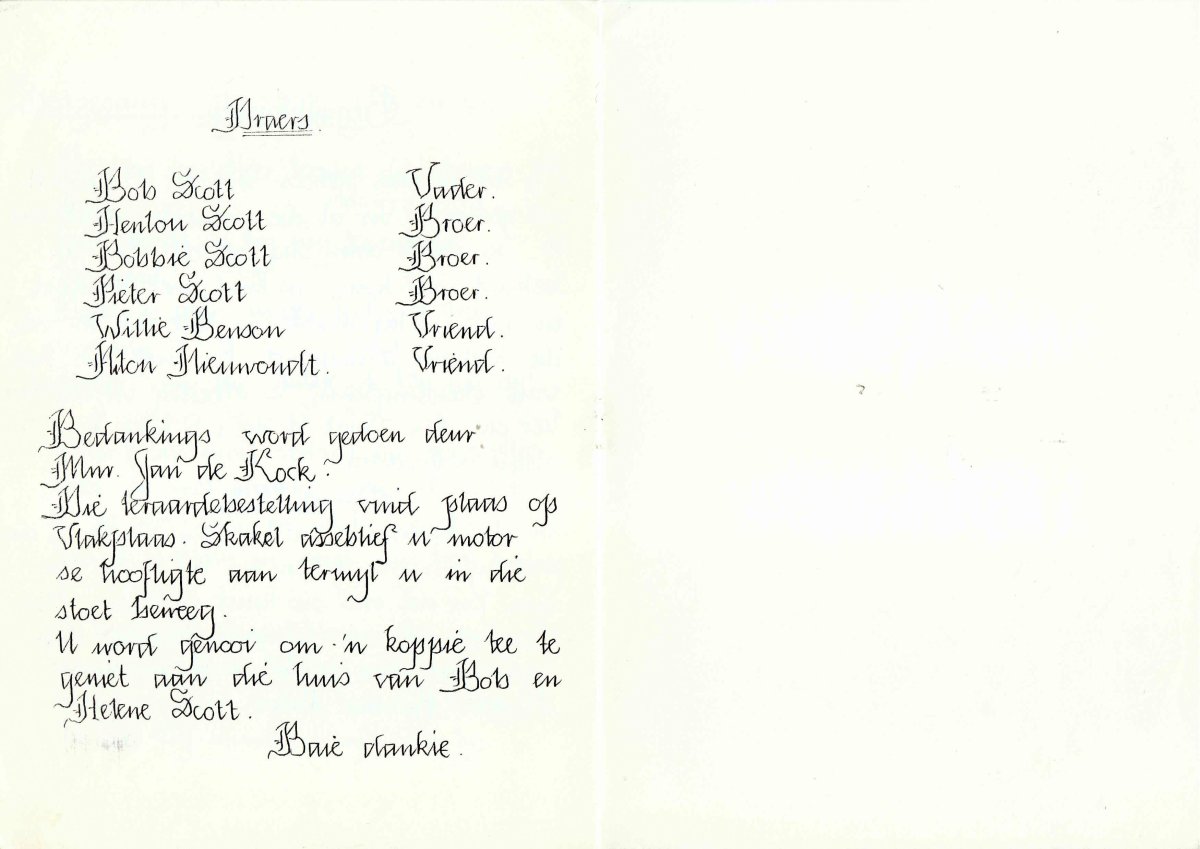 Draers
Bob Scott Vader.
Henlou Scott Broer.
Bobbie Scott Broer.
Pieter Scott Broer.
Willie Benson Vriend.
Alton Nieuwoudt. Vriend.
Bedankings word gedoen deur
Mnr. Jan de Kock.
Die teraardebestelling vind plaas op
Vlakplaas. Skakel asseblief u motor
se hooftigte aan terwyl u in die
stoet beweeg.
U word genooi om 'n koppie tee te
geniet aan die huis van Bob en
Helene Scott.
Baie dankie.